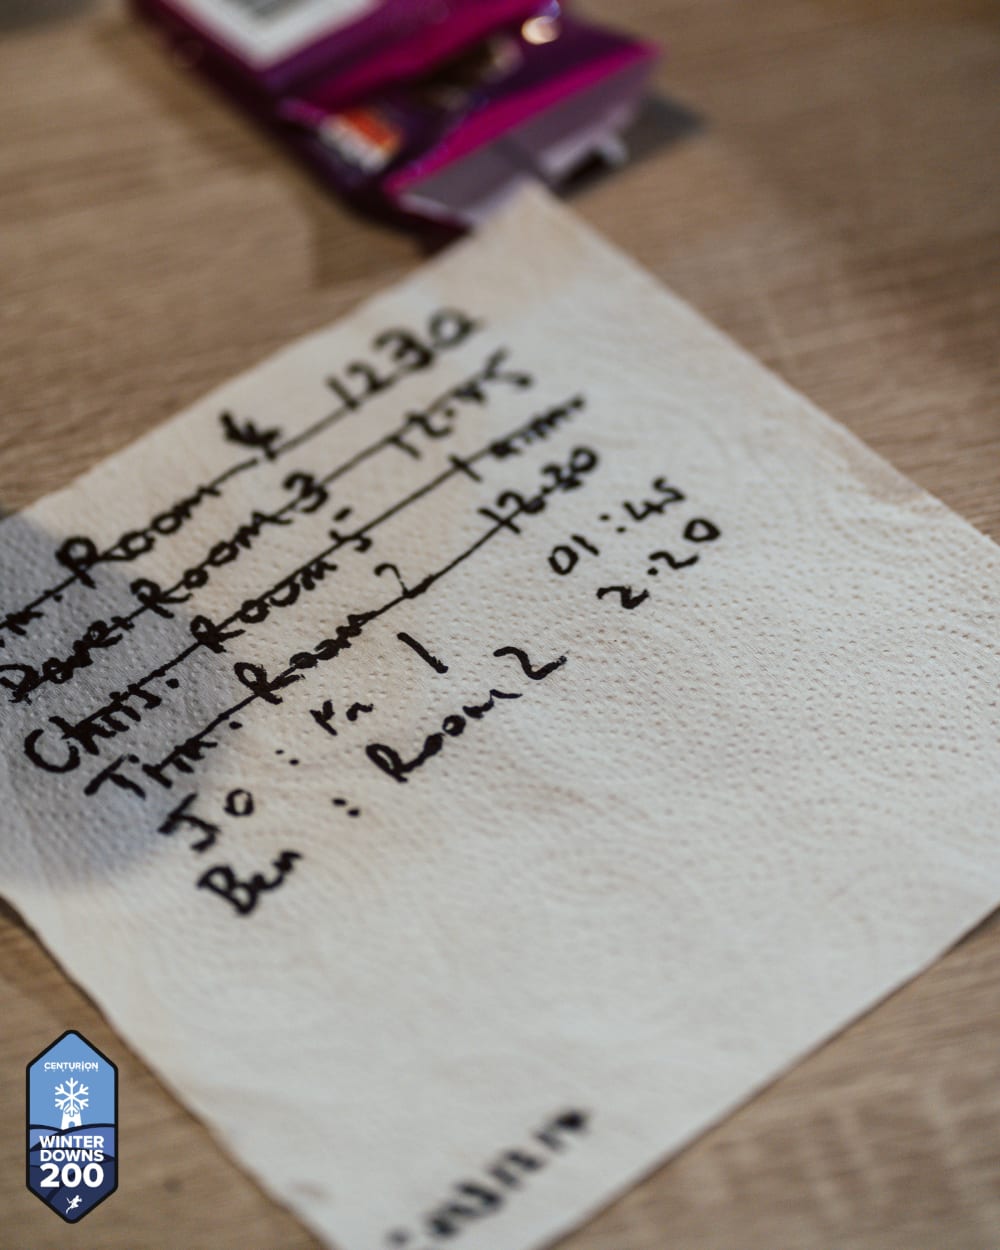 Room 4 1230
Dave: Room 3 12.45
Chris: Room 5 1 am.
Tim: Room 2 12.30
Jo : Rm 1 01:45
Ben : Room 2 2.20
CENTURION
WINTER
DOWNS
200